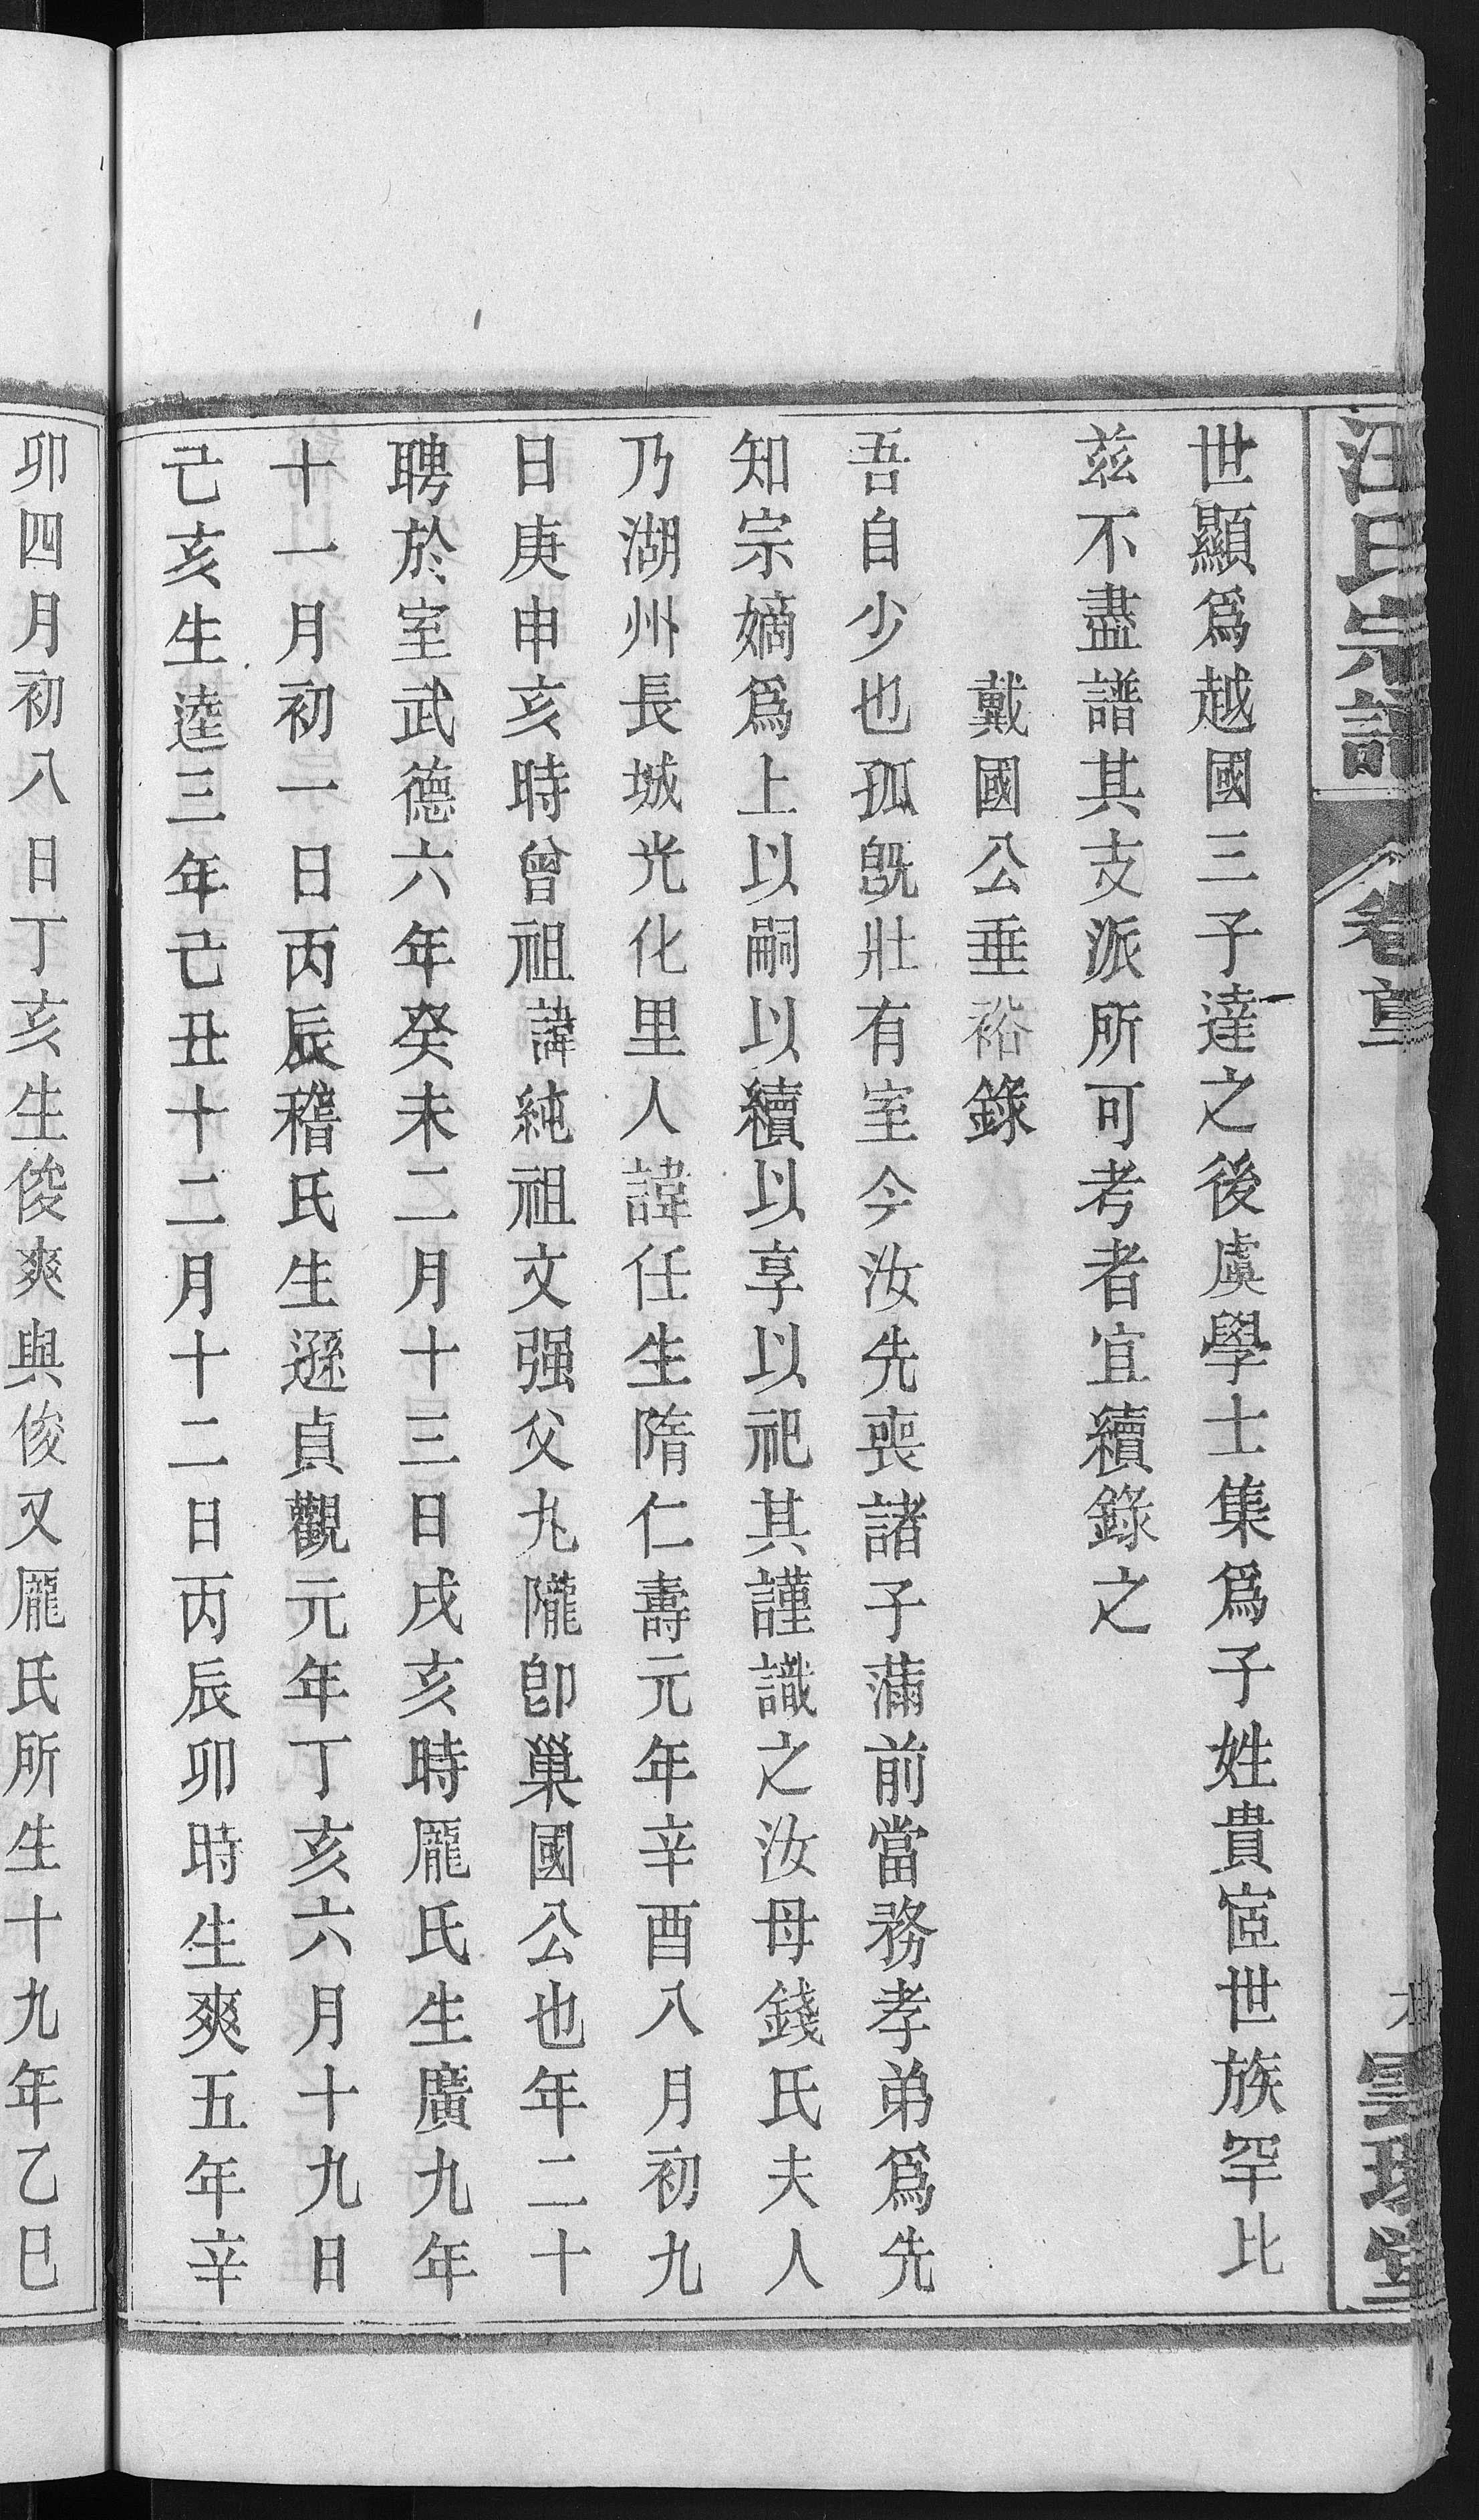 汪氏宗譜
卷首
世顯爲越國三子達之後虞學士集爲子姓貴宦世族罕比
茲不盡譜其支派所可考者宜續錄之
戴國公垂裕錄
吾自少也孤旣壯有室今汝先喪諸子蒲前當務孝弟爲先
知宗嫡爲上以嗣以續以享以祀其謹識之汝母錢氏夫人
乃湖州長城光化里人諱任生隋仁壽元年辛酉八月初九
日庚申亥時曾祖諱純祖文强父九隴卽巢國公也年二十
聘於室武德六年癸未二月十三日戌亥時龎氏生廣九年
十一月初一日丙辰稽氏生遜貞觀元年丁亥六月十九日
己亥生逵三年己丑十二月十二日丙辰卯時生爽五年辛
卯四月初八日丁亥生俊爽與俊又龎氏所生十九年乙巳